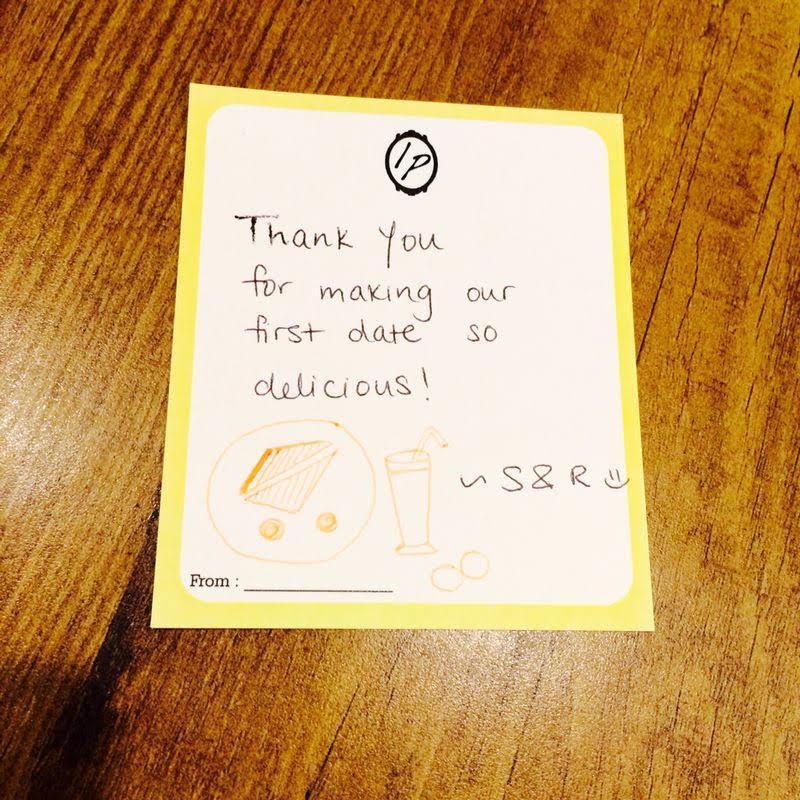 IP
Thank You
for making our
first date so
delicious!
~ S & R :)
From : ____________